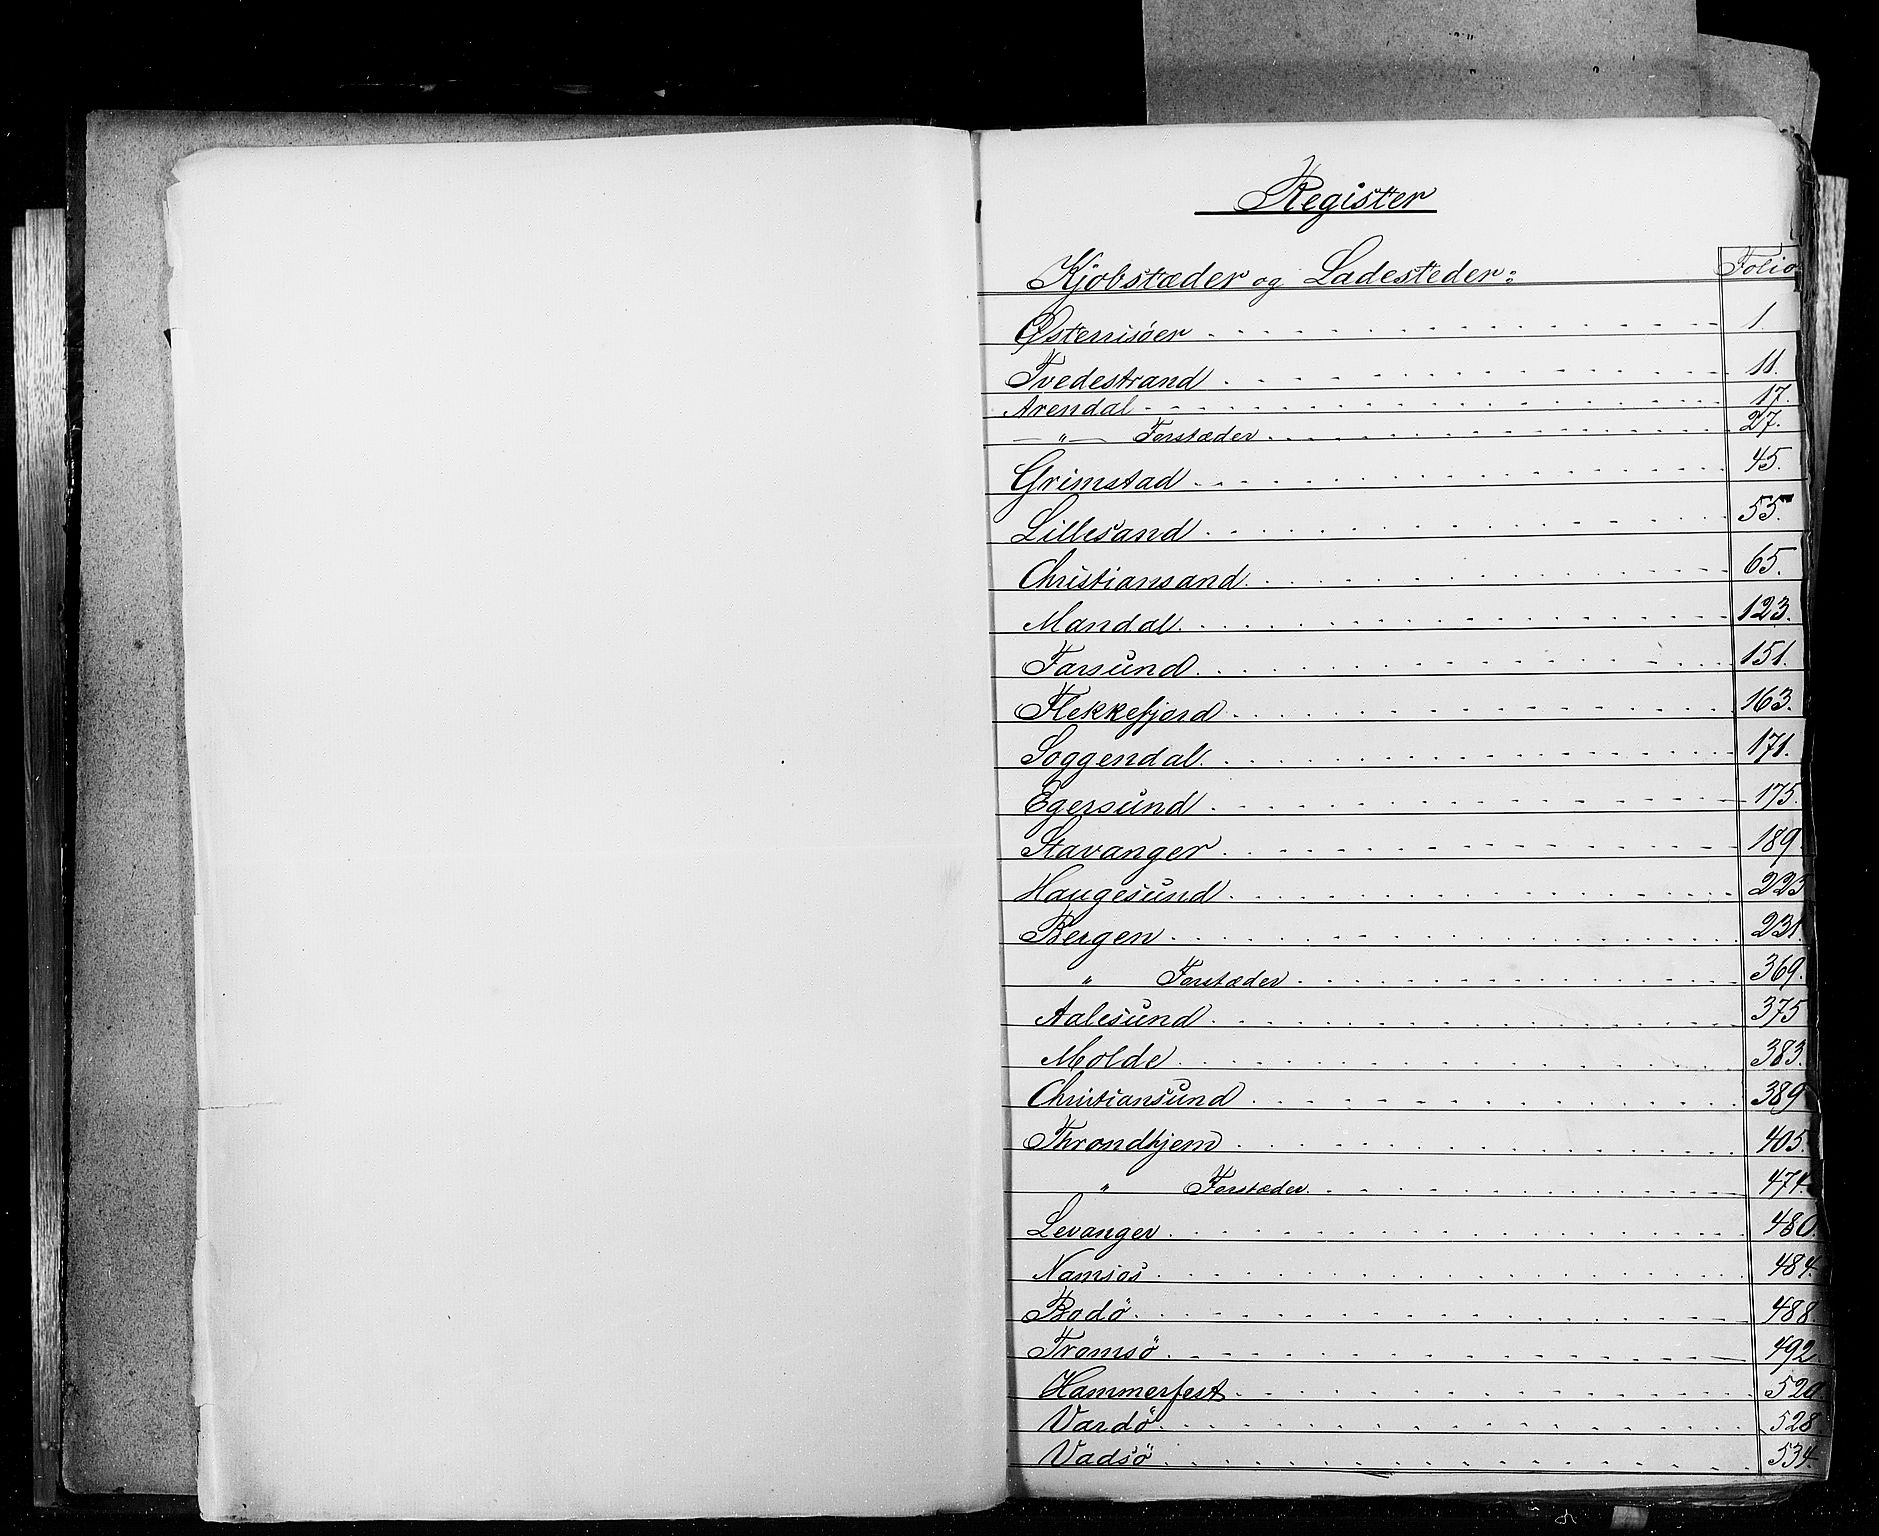 Register
Kjøbstæder og Ladesteder: Folio
Østerrisöer 1.
Tvedestrand 11.
Arendal 17.
— " — Forstæder 27.
Grimstad 45.
Lillesand 55.
Christiansand 65.
Mandal 123.
Farsund 151.
Flekkefjord 163.
Soggendal 171.
Egersund 175.
Stavanger 189
Haugesund 223
Bergen 231.
" Forstæder 369.
Aalesund 375
Molde 383.
Christiansund 389
Throndhjem 405.
" Forstæder 474.
Levanger 480.
Namsos 484.
Bodö 488.
Tromsö 492
Hammerfest 520.
Vardö 528.
Vadsö 534.